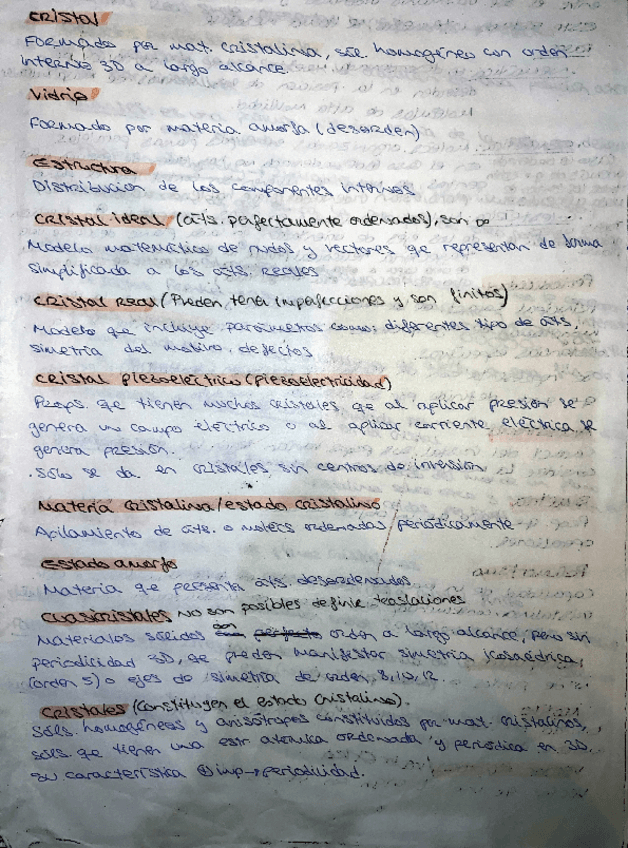 Cristal
Formado por mat. cristalina, sól. homogéneo con orden
interno 3D a largo alcance.
Vidrio
Formado por materia amorfa (desorden)
Estructura
Distribución de los componentes internos
Cristal ideal (áts. perfectamente ordenados), son ∞
Modelo matemático de nudos y vectores qe representan de forma
simplificada a los cists. reales
Cristal Real (Pueden tener imperfecciones y son finitos)
Modelo que incluye parámetros como: diferentes tipo de áts,
simetría del motivo, defectos
Cristal piezoeléctrico (piezoelectricidad)
Props. qe tienen muchos cristales qe al aplicar presión se
genera un campo eléctrico o al aplicar corriente eléctrica se
genera presión.
. Sólo se da en cristales sin centros de inversión
Materia cristalina/estado cristalino
Apilamiento de áts. o molecs ordenadas periódicamente
Estado amorfo
Materia qe presenta áts. desordenados
Cuasicristales No son posibles definir traslaciones
Materiales sólidos con orden a largo alcance, pero sin
periodicidad 3D, se pueden manifestar simetría icosaédrica,
(orden 5) o ejes de simetría de orden 8, 10, 12.
Cristales (constituyen el estado cristalino).
Sóls. homogéneos y anisótropos constituidos por mat. cristalinos,
sóls. qe tienen una estr. atómica ordenada y periódica en 3D
su característica ⊕ imp→periodicidad.